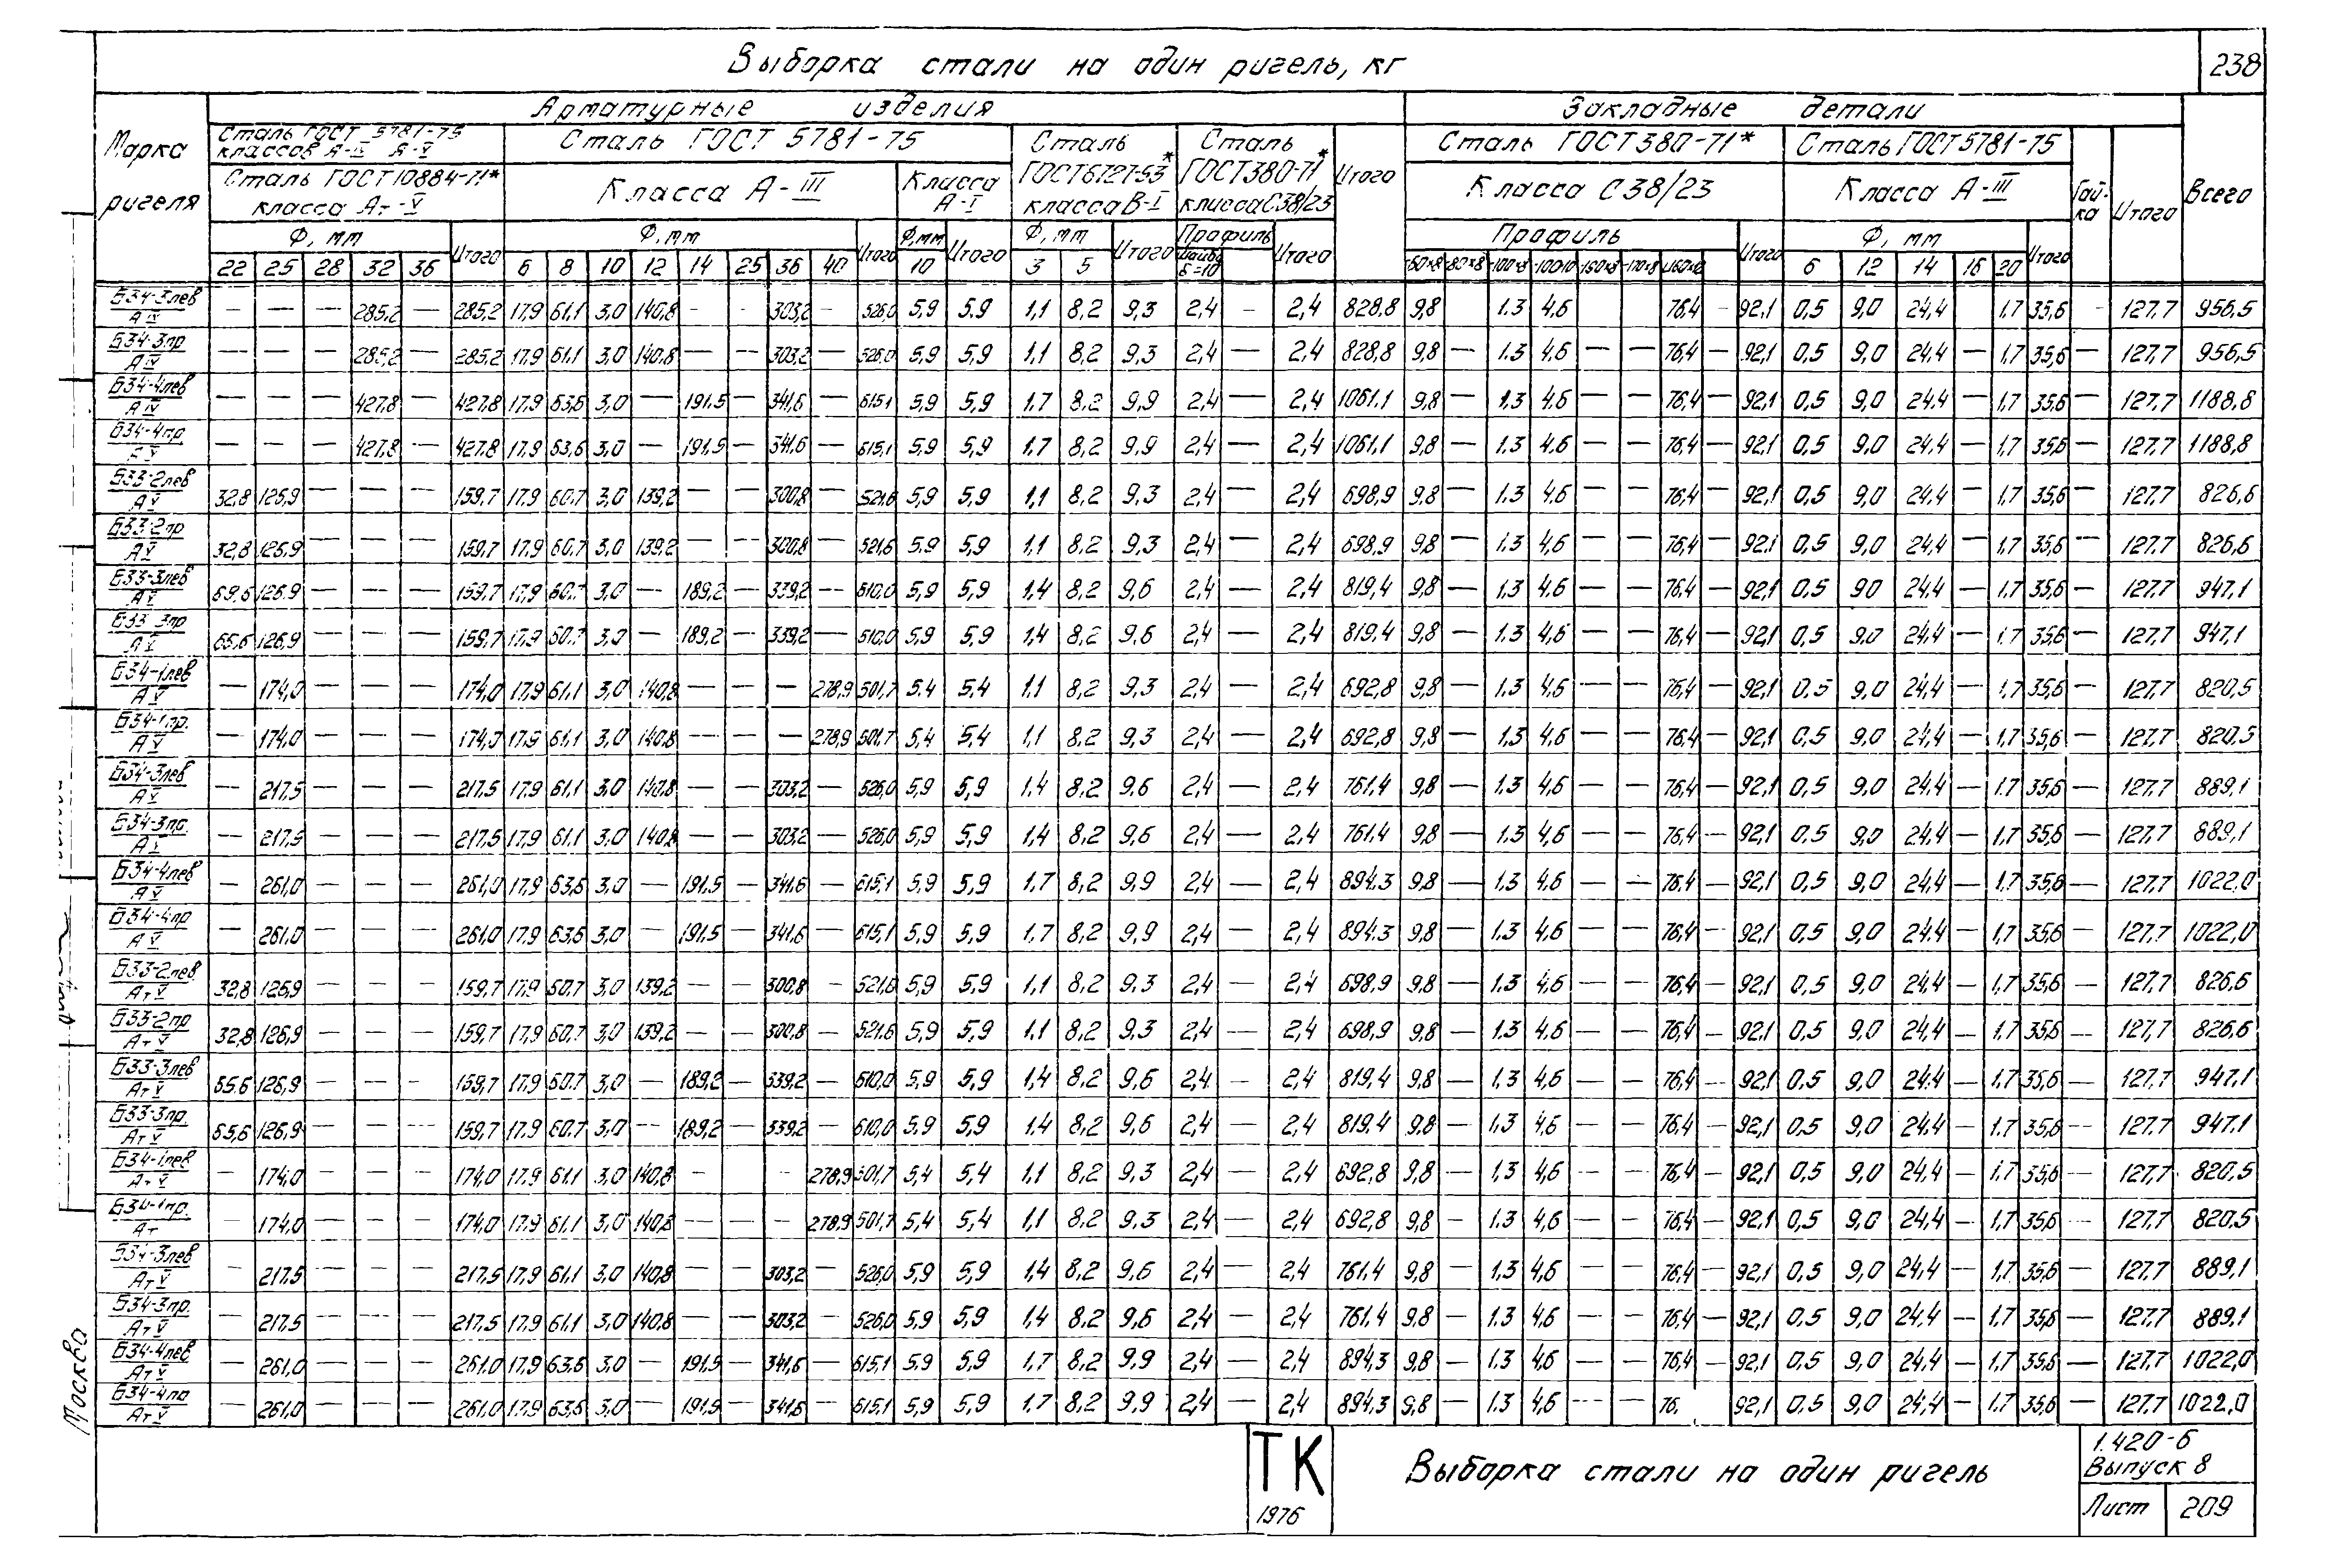 Выборка стали на один ригель, кг
238
Марка ригеля
Арматурные изделия
Закладные детали
Всего
Сталь ГОСТ 5781-75 классов А-IV А-V
Сталь ГОСТ 10884-71* класса Ат-V
Сталь ГОСТ 5781-75
Класса А-III
Класса А-I
Сталь ГОСТ 6727-53* класса В-I
Сталь ГОСТ 380-71* класса С38/23
Итого
Сталь ГОСТ 380-71*
Класса С38/23
Сталь ГОСТ 5781-75
Класса А-III
Гайка
Итого
Ф, мм Итого Ф, мм Итого Ф, мм Итого Ф, мм Итого Профиль Итого Профиль Итого Ф, мм Итого
22 25 28 32 36 6 8 10 12 14 25 36 40 10 3 5 Шайба δ=10 -60×8 -80×8 -100×8 -100×10 -150×8 -170×8 6 12 14 16 20
Б34-3лев АIV — — — 285,2 — 285,2 17,9 61,1 3,0 140,8 - - 303,2 — 526,0 5,9 5,9 1,1 8,2 9,3 2,4 — 2,4 828,8 9,8 1,3 4,6 76,4 — 92,1 0,5 9,0 24,4 1,7 35,6 - 127,7 956,5
Б34-3пр АIV — — — 285,2 — 285,2 17,9 61,1 3,0 140,8 — — 303,2 — 526,0 5,9 5,9 1,1 8,2 9,3 2,4 — 2,4 828,8 9,8 — 1,3 4,6 — — 76,4 — 92,1 0,5 9,0 24,4 — 1,7 35,6 — 127,7 956,5
Б34-4лев АIV — — — 427,8 — 427,8 17,9 63,6 3,0 — 191,5 — 341,6 — 615,1 5,9 5,9 1,7 8,2 9,9 2,4 — 2,4 1061,1 9,8 — 1,3 4,6 — — 76,4 — 92,1 0,5 9,0 24,4 — 1,7 35,6 — 127,7 1188,8
Б34-4пр — — — 427,8 — 427,8 17,9 63,6 3,0 — 191,5 — 341,6 — 615,1 5,9 5,9 1,7 8,2 9,9 2,4 — 2,4 1061,1 9,8 — 1,3 4,6 — — 76,4 — 92,1 0,5 9,0 24,4 — 1,7 35,6 — 127,7 1188,8
Б33-2лев АV 32,8 126,9 — — — 159,7 17,9 60,7 3,0 139,2 — — 300,8 — 521,6 5,9 5,9 1,1 8,2 9,3 2,4 — 2,4 698,9 9,8 — 1,3 4,6 — — 76,4 — 92,1 0,5 9,0 24,4 — 1,7 35,6 — 127,7 826,6
Б33-2пр АV 32,8 126,9 — — — 159,7 17,9 60,7 3,0 139,2 — — 300,8 — 521,6 5,9 5,9 1,1 8,2 9,3 2,4 — 2,4 698,9 9,8 — 1,3 4,6 — — 76,4 — 92,1 0,5 9,0 24,4 — 1,7 35,6 — 127,7 826,6
Б33-3лев АV 126,9 — — — 159,7 17,9 60,7 3,0 — 189,2 — 339,2 — 610,0 5,9 5,9 1,4 8,2 9,6 2,4 — 2,4 819,4 9,8 — 1,3 4,6 — — 76,4 — 92,1 0,5 90 24,4 — 1,7 35,6 — 127,7 947,1
Б33 3пр АV 65,6 126,9 — — — 159,7 17,9 60,7 3,0 — 189,2 — 339,2 — 610,0 5,9 5,9 1,4 8,2 9,6 2,4 — 2,4 819,4 9,8 — 1,3 4,6 — — 76,4 — 92,1 0,5 9,0 24,4 — 1,7 35,6 — 127,7 947,1
Б34-1лев АV — 174,0 — — — 174,0 17,9 61,1 3,0 140,8 — — — 278,9 501,7 5,4 5,4 1,1 8,2 9,3 2,4 — 2,4 692,8 9,8 — 1,3 4,6 — — 76,4 — 92,1 0,5 9,0 24,4 — 1,7 35,6 — 127,7 820,5
Б34-1пр. АV — 174,0 — — — 174,0 17,9 61,1 3,0 140,8 — — — 278,9 501,7 5,4 5,4 1,1 8,2 9,3 2,4 — 2,4 692,8 9,8 — 1,3 4,6 — — 76,4 — 92,1 0,5 9,0 24,4 — 1,7 35,6 — 127,7 820,5
Б34-3лев АV — 217,5 — — — 217,5 17,9 61,1 3,0 140,8 — — 303,2 — 526,0 5,9 5,9 1,4 8,2 9,6 2,4 — 2,4 761,4 9,8 — 1,3 4,6 — — 76,4 — 92,1 0,5 9,0 24,4 — 1,7 35,6 — 127,7 889,1
Б34-3пр. АV — 217,5 — — — 217,5 17,9 61,1 3,0 140,8 — — 303,2 — 526,0 5,9 5,9 1,4 8,2 9,6 2,4 — 2,4 761,4 9,8 — 1,3 4,6 — — 76,4 — 92,1 0,5 9,0 24,4 — 1,7 35,6 — 127,7 889,1
Б34-4лев АV — 261,0 — — — 261,0 17,9 63,6 3,0 — 191,5 — 341,6 — 615,1 5,9 5,9 1,7 8,2 9,9 2,4 — 2,4 894,3 9,8 — 1,3 4,6 — — 76,4 — 92,1 0,5 9,0 24,4 — 1,7 35,6 — 127,7 1022,0
Б34-4пр АV — 261,0 — — — 261,0 17,9 63,6 3,0 — 191,5 — 341,6 — 615,1 5,9 5,9 1,7 8,2 9,9 2,4 — 2,4 894,3 9,8 — 1,3 4,6 — — 76,4 — 92,1 0,5 9,0 24,4 — 1,7 35,6 — 127,7 1022,0
Б33-2лев АтV 32,8 126,9 — — — 159,7 17,9 60,7 3,0 139,2 — — 300,8 — 521,6 5,9 5,9 1,1 8,2 9,3 2,4 — 2,4 698,9 9,8 — 1,3 4,6 — — 76,4 — 92,1 0,5 9,0 24,4 — 1,7 35,6 — 127,7 826,6
Б33-2пр АтV 32,8 126,9 — — — 159,7 17,9 60,7 3,0 139,2 — — 300,8 — 521,6 5,9 5,9 1,1 8,2 9,3 2,4 — 2,4 698,9 9,8 — 1,3 4,6 — — 76,4 — 92,1 0,5 9,0 24,4 — 1,7 35,6 — 127,7 826,6
Б33-3лев АтV 65,6 126,9 — — - 159,7 17,9 60,7 3,0 — 189,2 — 339,2 — 610,0 5,9 5,9 1,4 8,2 9,6 2,4 — 2,4 819,4 9,8 — 1,3 4,6 — — 76,4 — 92,1 0,5 9,0 24,4 — 1,7 35,6 — 127,7 947,1
Б33-3пр. АтV 65,6 126,9 — — — 159,7 17,9 60,7 3,0 — 189,2 — 339,2 — 610,0 5,9 5,9 1,4 8,2 9,6 2,4 — 2,4 819,4 9,8 — 1,3 4,6 — — 76,4 — 92,1 0,5 9,0 24,4 — 1,7 35,6 — 127,7 947,1
Б34-1лев АтV — 174,0 — — — 174,0 17,9 61,1 3,0 140,8 — — 278,9 501,7 5,4 5,4 1,1 8,2 9,3 2,4 — 2,4 692,8 9,8 — 1,3 4,6 — — 76,4 — 92,1 0,5 9,0 24,4 — 1,7 35,6 — 127,7 820,5
Б34-1пр. Ат — 174,0 — — — 174,0 17,9 61,1 3,0 140,8 — — — 278,9 501,7 5,4 5,4 1,1 8,2 9,3 2,4 — 2,4 692,8 9,8 — 1,3 4,6 — — 76,4 — 92,1 0,5 9,0 24,4 — 1,7 35,6 — 127,7 820,5
Б34-3лев АтV — 217,5 — — — 217,5 17,9 61,1 3,0 140,8 — — 303,2 — 526,0 5,9 5,9 1,4 8,2 9,6 2,4 — 2,4 761,4 9,8 — 1,3 4,6 — — 76,4 — 92,1 0,5 9,0 24,4 — 1,7 35,6 — 127,7 889,1
Б34-3пр. АтV — 217,5 — — — 217,5 17,9 61,1 3,0 140,8 — — 303,2 — 526,0 5,9 5,9 1,4 8,2 9,6 2,4 — 2,4 761,4 9,8 — 1,3 4,6 — — 76,4 — 92,1 0,5 9,0 24,4 — 1,7 35,6 — 127,7 889,1
Б34-4лев АтV — 261,0 — — — 261,0 17,9 63,6 3,0 — 191,5 — 341,6 — 615,1 5,9 5,9 1,7 8,2 9,9 2,4 — 2,4 894,3 9,8 — 1,3 4,6 — — 76,4 — 92,1 0,5 9,0 24,4 — 1,7 35,6 — 127,7 1022,0
Б34-4пр АтV — 261,0 — — — 261,0 17,9 63,6 3,0 — 191,5 — 341,6 — 615,1 5,9 5,9 1,7 8,2 9,9 2,4 — 2,4 894,3 9,8 — 1,3 4,6 — — 76, 92,1 0,5 9,0 24,4 — 1,7 35,6 — 127,7 1022,0
Москва
ТК
1976
Выборка стали на один ригель
1.420-6
Выпуск 8
Лист 209